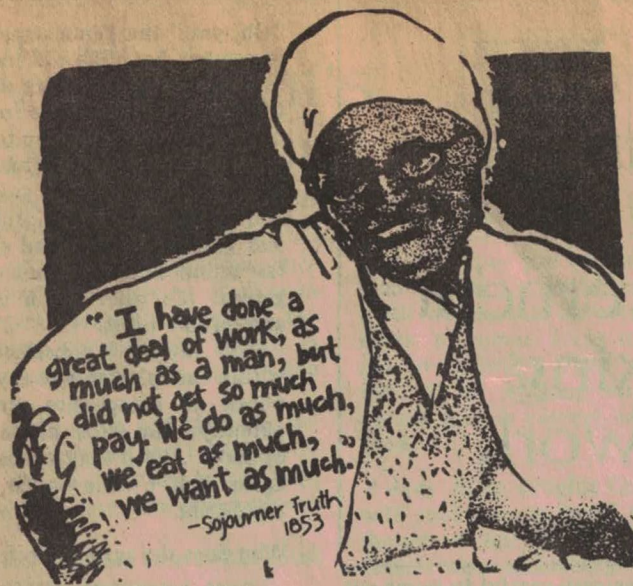 " I have done a
great deal of work, as
much as a man, but
did not get so much
pay. We do as much,
we eat as much,
we want as much."
—Sojourner Truth
1853